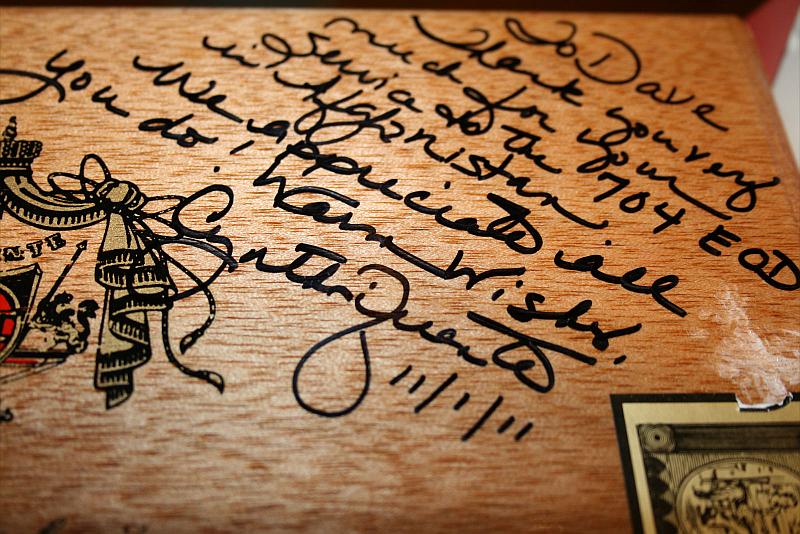 To Dave
Thank you very
much for your
Service to the 704 EOD
in Afghanistan.
We appreciate all
you do!
Warm Wishes,
Cynthia
11/1/11